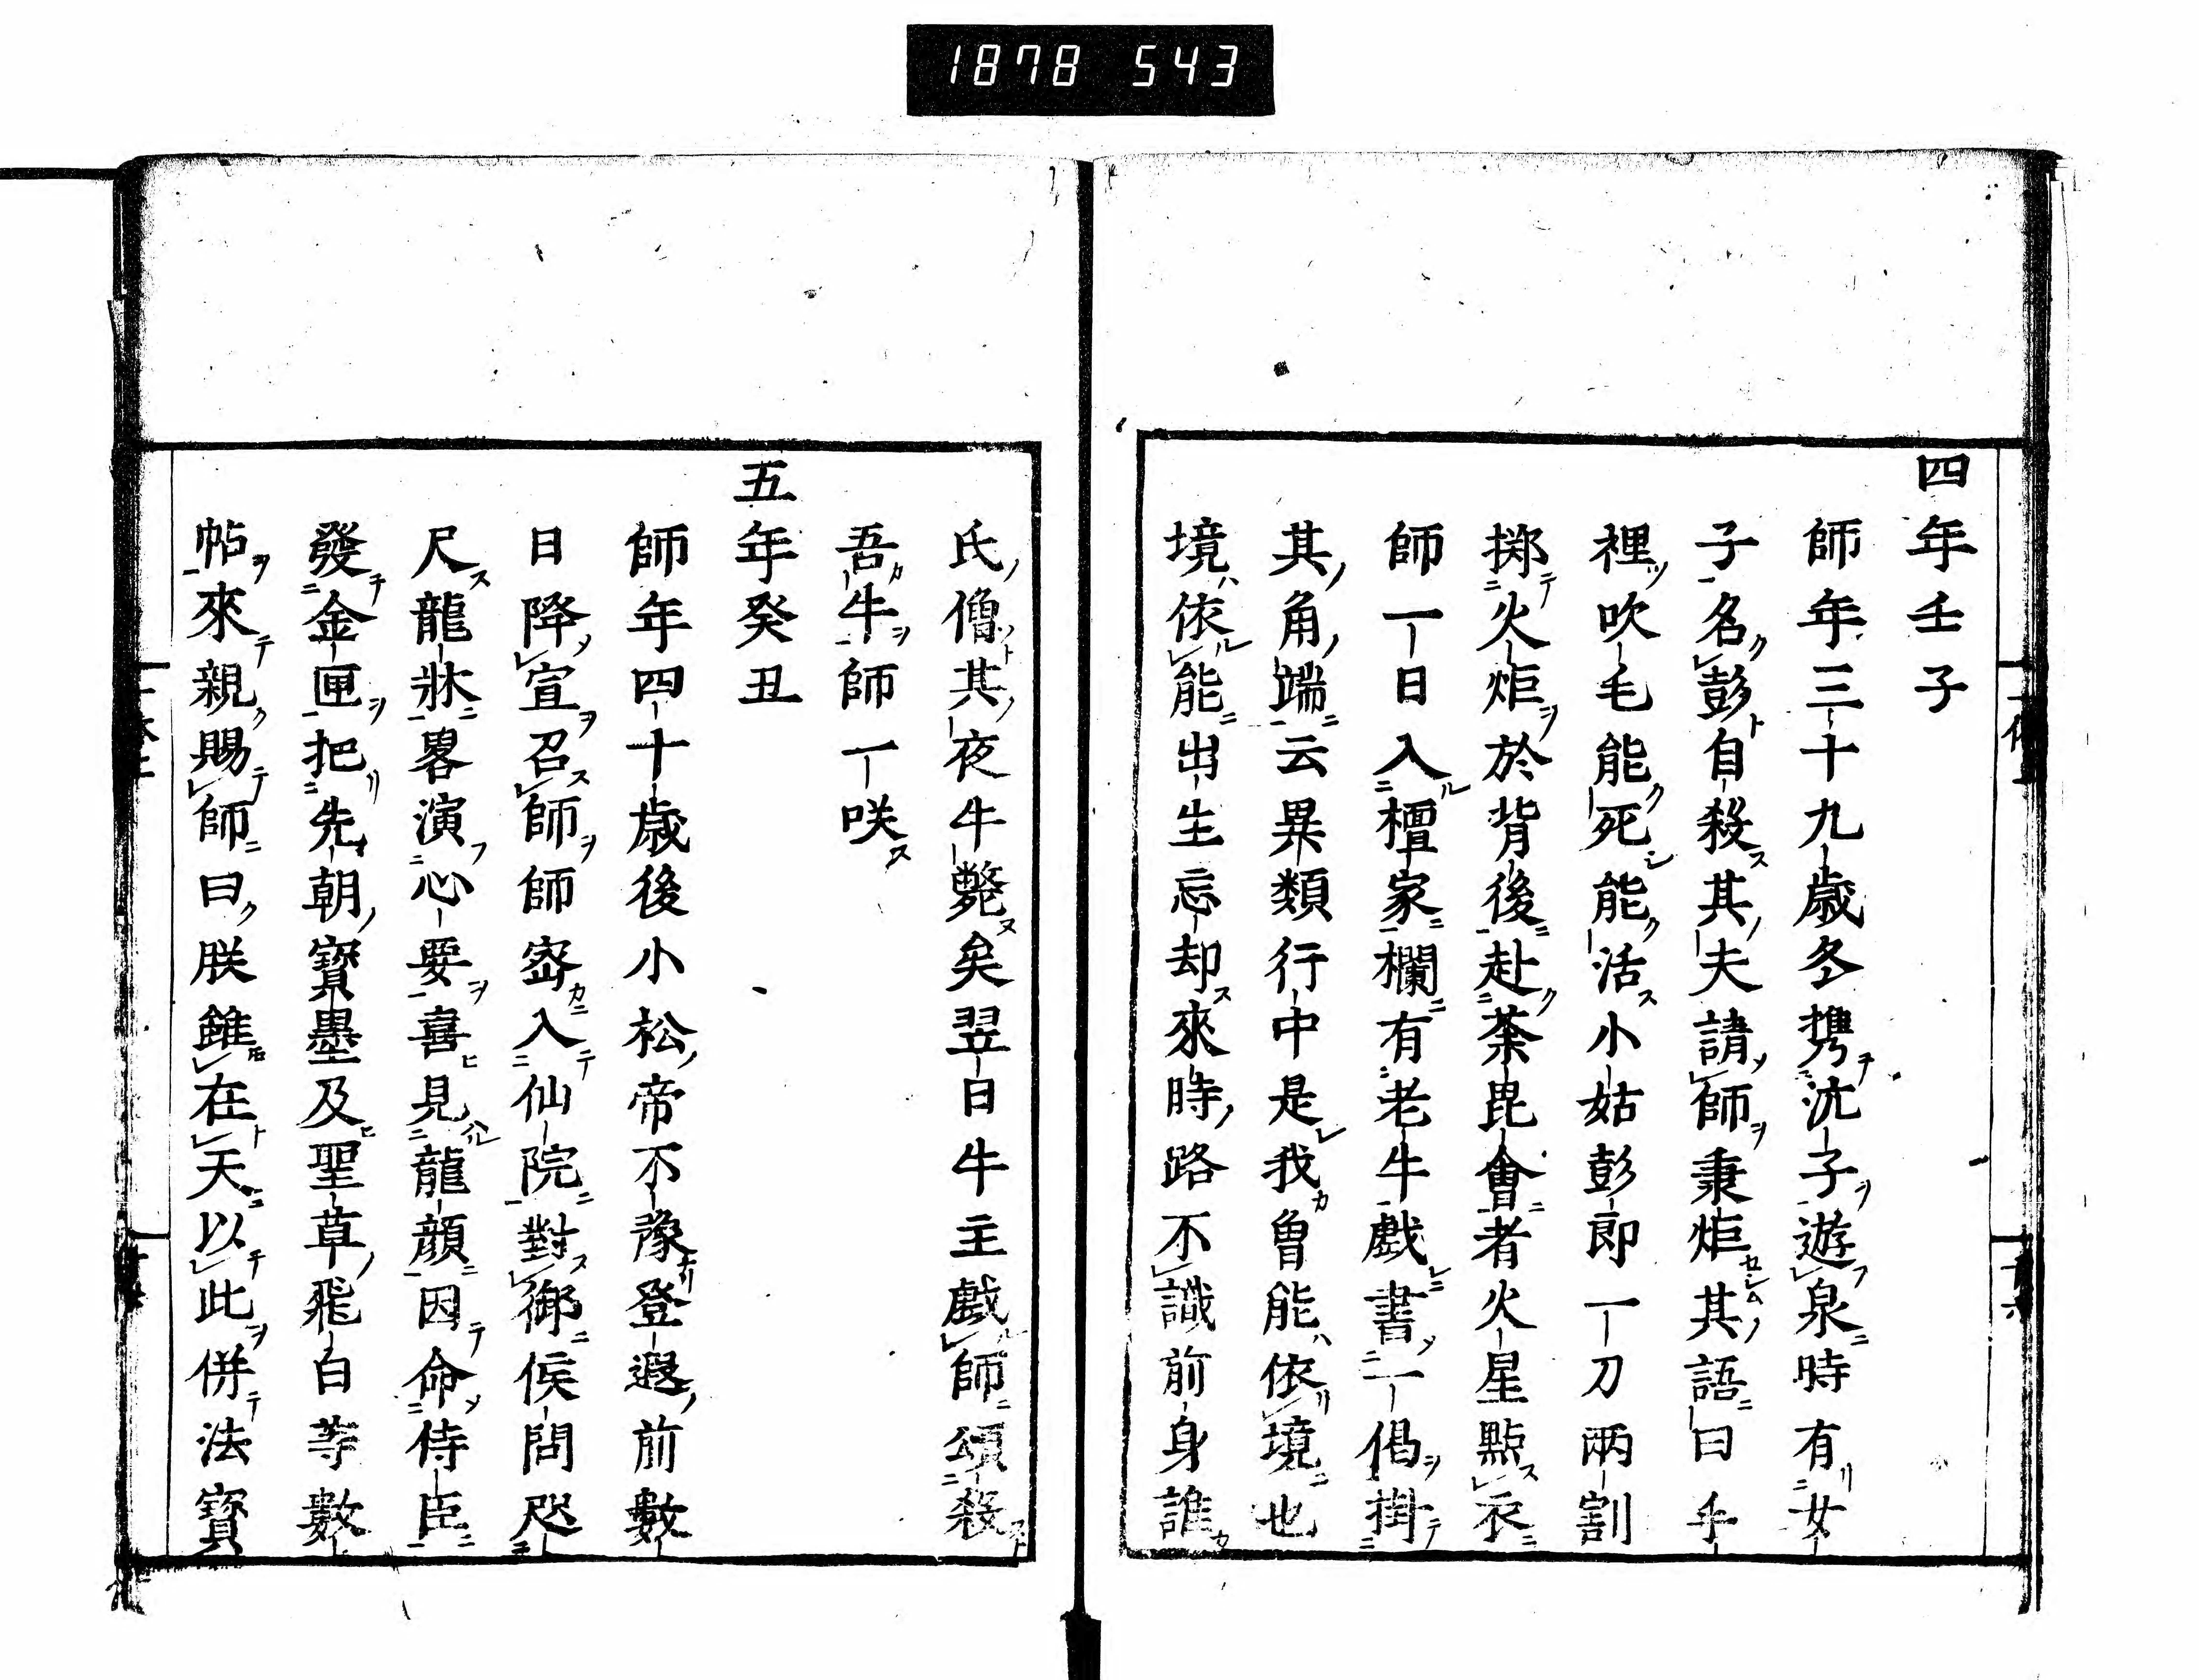 1878 543
四年壬子
師年三十九歳冬携沈子遊泉時有女
子名彭自殺其夫請師秉炬其語曰手
裡吹毛能死能活小姑彭郎一刀兩割
擲火炬於背後赴荼毘會者火星點衣
師一日入檀家欄有老牛戲書一偈掛
其角端云異類行中是我曾能依境也
境依能出生忘却來時路不識前身誰
氏僧其夜牛斃矣翌日牛主戲師頌殺
吾牛師一咲
五年癸丑
師年四十歳後小松帝不豫登遐前數
日降宣召師師密入仙院對御候問咫
尺龍牀畧演心要喜見龍顔因命侍臣
發金匣把先朝寶墨及聖草飛白等數
帖來親賜師曰朕雖在天以此併法寶